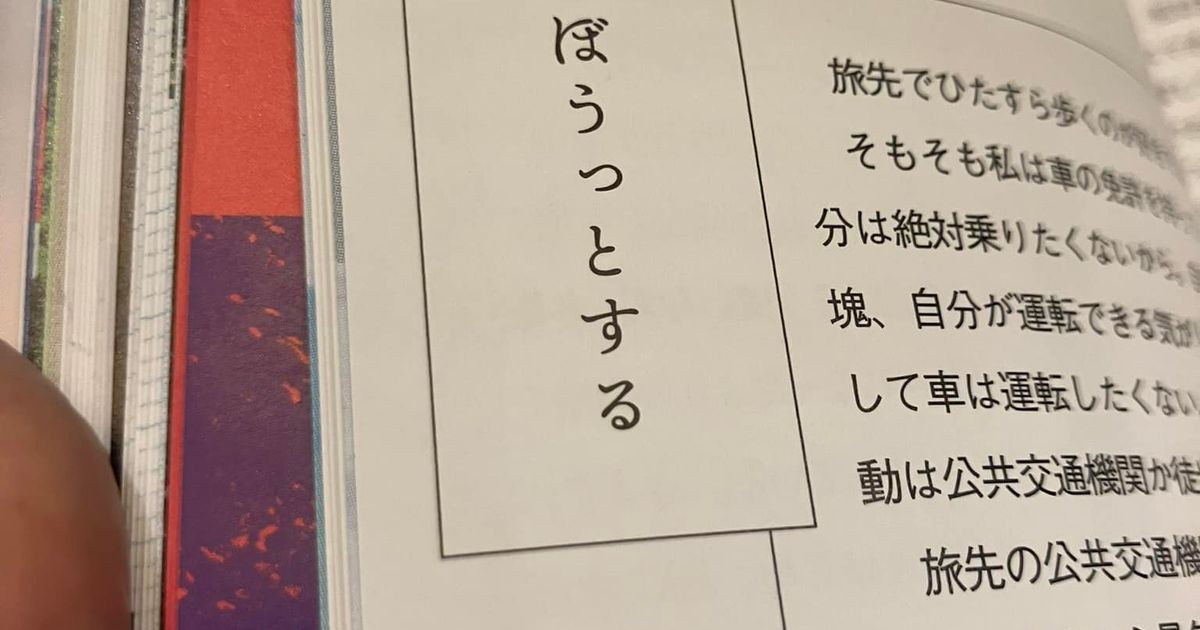 ぼうっとする
旅先でひたすら歩くのが
そもそも私は車の免許を
分は絶対乗りたくないから。
塊、自分が運転できる気が
して車は運転したくない
動は公共交通機関か徒
旅先の公共交通機